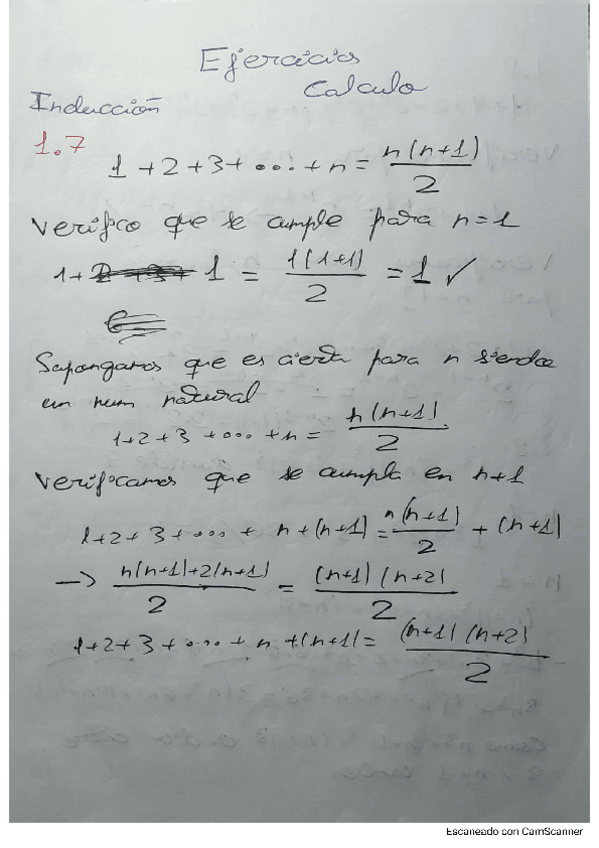 Ejercicios
Calculo
Inducción
1.7
1 + 2 + 3 + ... + n = n(n+1) / 2
Verifico que se cumple para n=1
1 + 1 = 1(1+1) / 2 = 1 ✓
Supongamos que es cierta para n siendo
un num natural
1+2+3+...+n = n(n+1) / 2
Verificamos que se cumpla en n+1
1+2+3+...+ n+(n+1) = n(n+1) / 2 + (n+1)
→ n(n+1)+2(n+1) / 2 = (n+1)(n+2) / 2
1+2+3+...+ n +(n+1) = (n+1)(n+2) / 2
Escaneado con CamScanner